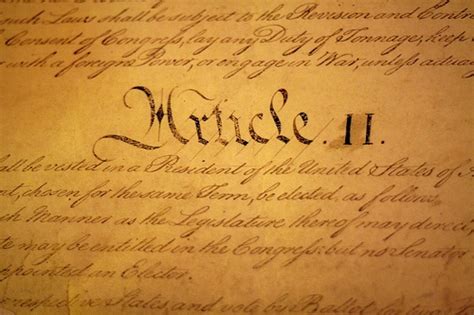 such Laws shall be subject to the Revision and Contro
Consent of Congress, lay any Duty of Tonnage, keep
with a foreign Power, or engage in War, unless actua
Article. II.
all be vested in a President of the United States of A
nt, chosen for the same Term, be elected, as follows
ch Manner as the Legislature thereof may direct,
te may be entitled in the Congress: but no Senator
ppointed an Elector.
respective States, and vote by Ballot for two